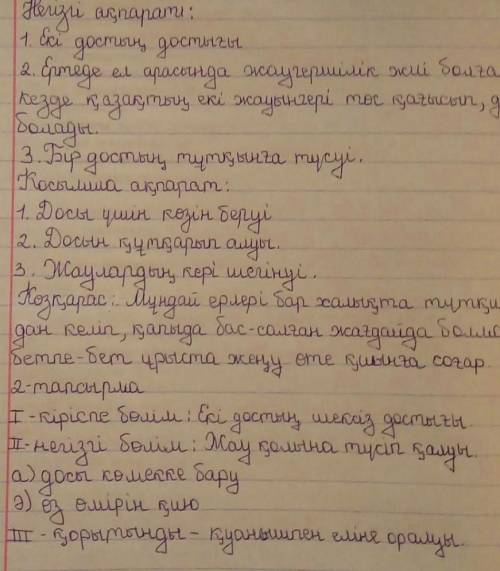 Негізгі ақпараты:
1. Екі достың достығы
2. Ертеде ел арасында жаугершілік жиі болға
кезде қазақтың екі жауынгері төс қағысып, д
болады.
3. Бір достың тұтқынға түсуі.
Қосымша ақпарат:
1. Досы үшін көзін беруі
2. Досын құтқарып алуы.
3. Жаулардың кері шегінуі.
Көзқарас: Мұндай ерлері бар халықта тұтқи
дан келіп, қапыда бас-салған жағдайда болмс
бетпе-бет ұрыста жеңу өте қиынға соғар.
2-тапсырма
I - кіріспе бөлім: Екі достың шексіз достығы.
II - негізгі бөлім: Жау қолына түсіп қалуы.
а) досы көмекке бару
Ә) өз өмірін қию
III - қорытынды - қуанышпен еліне оралуы.